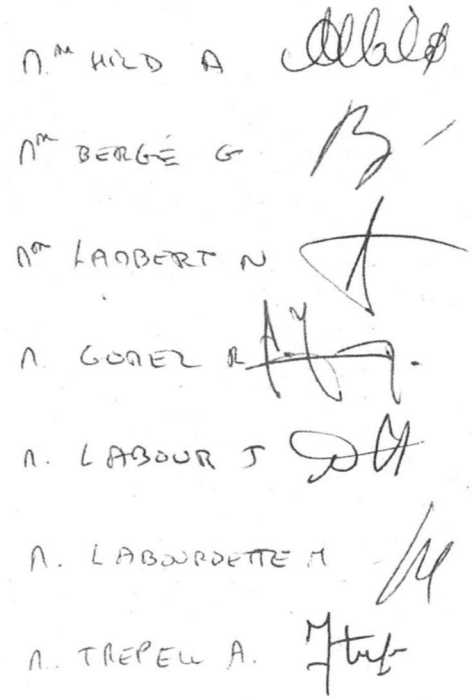 Mme HILD A
Mme BERGÉ G
Mme LAMBERT N
M. GOMEZ R
M. LABOUR J
M. LABOURDETTE M
M. TREPEU A.